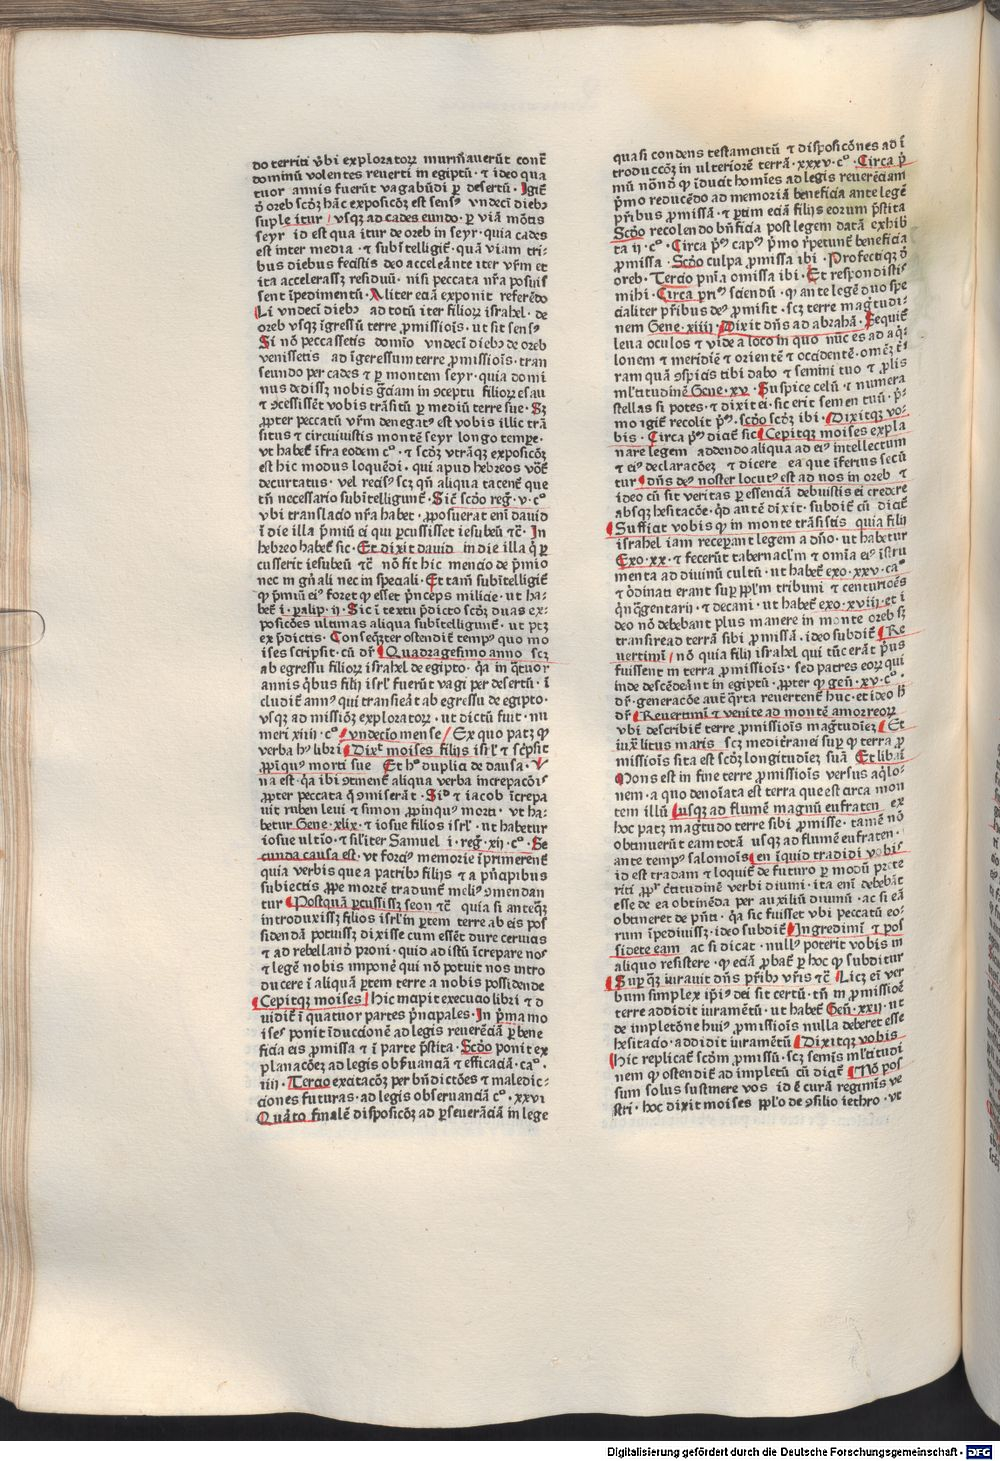 do territi v̄bi exploratoꝝ murm̄auerūt contᷓ
dominū volentes reuerti in egiptū · ⁊ ideo qua
tuor annis fuerūt vagabūdi ꝑ desertū · Igiᷓ
ẜm oreb scd̄ꝫ hāc exposicōꝫ est sensꝰ vndeci diebꝫ
suple itur / vsqꝫ ad cades eundo · ꝑ viā mōtis
seyr id est qua itur de oreb in seyr · quia cades
est inter media · ⁊ subītelligiᷓ · quā viam tri-
bus diebus fecistis deo acceleāte iter vr̄m et
ita accelerassꝫ residuū · nisi peccata nr̄a posuis
sent īpedimentū · Aliter eciā exponit referēdo
Li vndeci diebꝫ ad totū iter filioꝝ israhel · de
oreb vsqꝫ īgressū terre ꝓmissiōis · ut sit sensꝰ
Si nō peccassetis domīo vndeci diebꝫ de oreb
venissetis ad īgeressum terre ꝓmissiōis · tran
seundo per cades ⁊ ꝑ montem seyr · quia domi
nus dedissꝫ nobis gr̄ciam in ꝯceptu filioꝝ esau
⁊ ꝯcessissēt vobis trāsitū ꝑ mediū terre sue · Sꝫ
ꝓpter peccatū vr̄m denegatꝰ est vobis illic trā
situs ⁊ circuiuistis montē seyr longo tempe ·
vt habeᷓ īfra eodem cº · ⁊ scd̄ꝫ vtrāqꝫ exposicōꝫ
est hic modus loquēdi · qui apud hebreos vocᷓ
decurtatus · vel recisꝰ scꝫ qn̄ aliqua tacenᷓ que
tn̄ necessario subītelligunᷓ · Siᷓ scd̄o reg̉ · v · cº
vbi translacio nr̄a habet · ꝓposuerat eni dauid
ī die illa p̄miū ei qui ꝑcussisset iebuseū ⁊c̄ · In
hebreo habeᷓ sic · Et dixit dauid in die illa q̄ ꝑ
cusserit iebuseū ⁊c̄ nō fit hic mencio de p̄mio
nec in gn̄ali nec in speciali · Et tam̄ subītelligiᷓ
ꝙ p̄miū eiꝰ foret ꝙ esset p̄nceps milicie · ut ha-
beᷓ i · ꝑalip · ij · Sic ī textu p̄dicto scd̄ꝫ duas ex-
posicōes ultimas aliqua subītelligunᷓ · ut ptꝫ
ex p̄dictis · Consequēter ostendiᷓ tempꝰ quo mo
ises scripsit · cū dr̄ Quadragesimo anno scꝫ
ab egressu filioꝝ israhel de egipto · q̄a in q̄tuor
annis q̄bus filij isrl̄ fuerūt vagi per desertū · ī
cludiᷓ annꝰ qui transieāt ab egressu de egipto ·
vsqꝫ ad missiōꝫ exploratoꝝ · ut dictū fuit · nu
meri xiiij · cº / vndecio mense / Ex quo patꝫ ꝙ
verba hꝰ libri Dixᷓ moises filijs isrl̄ ⁊ sc̄psit
ꝓpiquꝰ morti sue Et hꝰ duplia de causa · V
na est · q̄a ibi ꝯtinenᷓ aliqua verba increpacōis
ꝓpter peccata q̄ ꝯmiserāt · Sīd ⁊ iacob īcrepa
uit ruben leui ⁊ simon ꝓpinquꝰ morti · vt ha-
betur Gene · xlix · ⁊ iosue filios isrl̄ · ut habetur
iosue ultīo · ⁊ sil̄iter Samuel i · reg̉ · xij · cº · Se
cunda causa est · vt forciꝰ memorie īprimerenᷓ
quia verbis que a patribꝫ filijs ⁊ a p̄ncipibus
subiectis ꝓpe mortē tradunᷓ meliꝰ ꝯmendan
tur Postquā ꝑcussissꝫ seon ⁊c̄ quia si anteq̄ꝫ
introduxissꝫ filios isrl̄ in ꝑtem terre ab eis pos
sidendā potuissꝫ dixisse cum essēt dure ceruias
⁊ ad rebellandꝰ proni · quid ad istū īcrepare nos
⁊ legē nobis imponē qui nō potuit nos intro
ducere ī aliquā ꝑtem terre a nobis possidende
Cepitqꝫ moises / hic incipit execucio libri ⁊ d
iuidiᷓ ī quatuor partes p̄ncipales · In p̄ma mo
isesꝰ ponit īduccionē ad legis reuerēciā ꝑ bene
ficia eis ꝓmissa ⁊ ī parte p̄stita · Scd̄o ponit ex
planacōeꝫ ad legis obẜuanciā ⁊ efficaciā · caº ·
iiij · Tercio exaitacōꝫ per bn̄dictōes ⁊ maledic-
ciones futuras · ad legis obseruanciā cº · xxvi
Quārto finalē disposicōꝫ ad ꝑseuerāciā in lege
quasi condens testamentū ⁊ disposicōnes ad ī
troduccōꝫ in ulteriorē terrā · xxxv · cº · Circa p̄
mū nōnō ꝙ īducit homīes ad legis reuerēciam
p̄mo reducēdo ad memoriā beneficia ante legē
pr̄ibus ꝓmissā · ⁊ ꝑtim eciā filijs eorum p̄stita
Scd̄o recolendo bn̄ficia post legem datā exhibi
ta ij · cº · Circa p̄ꝰ capꝰ p̄mo r̄petunᷓ beneficia
ꝓmissa · Scd̄o culpa ꝓmissa ibi · Profectiqꝫ ẜm
oreb · Tercio pnīa omissa ibi · Et respondistis
mihi · Circa pr̄iꝰ sciendū · ꝙ ante legē duo spe
cialiter pr̄ibus deꝰ ꝓmisit · scꝫ terre mag̉tudi-
nem Gene · xiiij · Dixit dn̄s ad abrahā · Sequiᷓ
leua oculos ⁊ vide a loco in quo nūc es ad aq̄i
lonem ⁊ meridiē ⁊ orientē ⁊ occidentē · omēꝫ tr̄
ram quā ꝯspicis tibi dabo ⁊ semini tuo ⁊ ꝓlis
ml̄titudinē Gene · xv · Suspice celū · ⁊ numera
stellas si potes · ⁊ dixit ei · sic erit semen tuū · p̄-
mo igiᷓ recolit p̄ꝰ · scd̄o scd̄ꝫ ibi · Dixitqꝫ vo-
bis · Circa p̄ꝰ diciᷓ sic Cepitqꝫ moises expla
nare legem addendo aliqua ad eiꝰ intellectum
⁊ eiꝰ declaracōeꝫ ⁊ dicere ea que īferius secū
tur dn̄s deꝰ noster locutꝰ est ad nos in oreb ⁊
ideo cū sit veritas ꝑ essenciā debuistis ei credere
absqꝫ hesitacōe · qd̄ autē dixit · subdiᷓ cū diciᷓ
Sufficit vobis ꝙ in monte trāsistis quia filij
israhel iam receperant legem a dn̄o · ut habetur
Exo · xx · ⁊ fecerūt tabernacl̄m ⁊ omīa eiꝰ istru
menta ad diuinū cultū · ut habeᷓ exo · xxv · caº
⁊ ōdinati erant suꝑ ppl̄m tribuni ⁊ centuriōes
q̄nq̄gentarij · ⁊ decani · ut habeᷓ exo · xviij · et i
deo nō debebant plus manere in monte oreb sꝫ
transire ad terrā sibi ꝓmissā · ideo subdiᷓ Re
uertimī / nō quia filij israhel qui tūc erāt pr̄us
fuissent in terra ꝓmissiois · sed patres eoꝝ qui
inde descēdeāt in egiptū · ꝓpter ꝙ gen̄ · xv · cº ·
dr̄ · generacōe autē q̄rta reuertenᷓ huc · et ideo h̄
dr̄ Reuertimī ⁊ venite ad montē amorreoꝝ
vbi describiᷓ terre ꝓmissiois mag̉tudieꝫ Et
iuxᷓ litus maris scꝫ mediēranei suꝑ ꝙ terra ꝓ
missiois sita est scd̄ꝫ longitudieꝫ suā Et libani
Mons est in fine terre ꝓmissiois versus aq̄lo-
nem · a quo denoiata est terra que est circa mon
tem illū usqꝫ ad flumē magnū eufraten ex
hoc patꝫ mag̉tudo terre sibi ꝓmisse · tamē nō
obtinuerūt eam totā usqꝫ ad flumē eufraten ·
ante tempꝰ salomōis en īquid tradidi vobis
id est tradam ⁊ loquiᷓ de futuro ꝑ modū prete
riti ꝓpᷓ c̄titudinē verbi diuini · ita eni debebāt
esse de ea obtinēda per auxiliū diuinū · ac si eā
obtineret de pn̄ti · q̄a sic fuisset vbi peccatū eo-
rum īpediuissꝫ · ideo subdiᷓ Ingredimī ⁊ pos
sidete eam ac si dicat · nullꝰ poterit vobis in
aliquo resistere · ꝙ eciā ꝓbaᷓ ꝑ hoc ꝙ subditur
Suꝑ q̄ꝫ iurauit dn̄s pr̄ibꝫ vr̄is ⁊c̄ Licꝫ eī ver
bum simplex ip̄iꝰ dei sit certū · tn̄ in ꝓmissiōe
terre addidit iuramētū · ut habeᷓ Gen̄ · xxij · ut
de impletōne huiꝰ ꝓmissiois nulla deberet esse
hesitacio · addidit iuramētū Dixitqꝫ vobis
Hic replicaᷓ scd̄om ꝓmissū · scꝫ semīs ml̄titudi
nem ꝙ ostendiᷓ ad impletū cū diciᷓ Nō pos
sum solus sustinere vos id ē curā regimīs ve
stri · hoc dixit moises ppl̄o de ꝯsilio iethro · vt
Digitalisierung gefördert durch die Deutsche Forschungsgemeinschaft - DFG